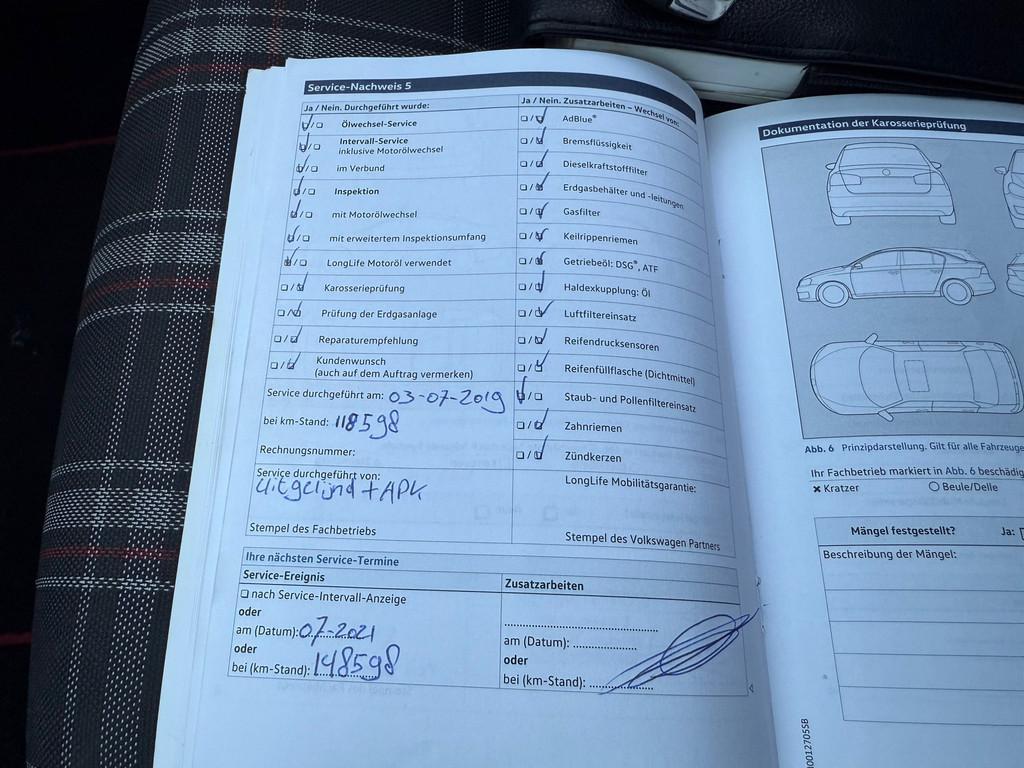 Service-Nachweis 5
Ja / Nein. Durchgeführt wurde:
Ölwechsel-Service
Intervall-Service
inklusive Motorölwechsel
im Verbund
Inspektion
mit Motorölwechsel
mit erweitertem Inspektionsumfang
LongLife Motoröl verwendet
Karosserieprüfung
Prüfung der Erdgasanlage
Reparaturempfehlung
Kundenwunsch
(auch auf dem Auftrag vermerken)
Service durchgeführt am: 03-07-2019
bei km-Stand: 118598
Rechnungsnummer:
Service durchgeführt von:
uitgelijnd + APK
Stempel des Fachbetriebs
Ja / Nein. Zusatzarbeiten – Wechsel von:
AdBlue®
Bremsflüssigkeit
Dieselkraftstofffilter
Erdgasbehälter und -leitungen
Gasfilter
Keilrippenriemen
Getriebeöl: DSG®, ATF
Haldexkupplung: Öl
Luftfiltereinsatz
Reifendrucksensoren
Reifenfüllflasche (Dichtmittel)
Staub- und Pollenfiltereinsatz
Zahnriemen
Zündkerzen
LongLife Mobilitätsgarantie:
Stempel des Volkswagen Partners
Ihre nächsten Service-Termine
Service-Ereignis
nach Service-Intervall-Anzeige
oder
am (Datum): 07-2021
oder
bei (km-Stand): 148598
Zusatzarbeiten
am (Datum):
oder
bei (km-Stand):
Dokumentation der Karosserieprüfung
Abb. 6 Prinzipdarstellung. Gilt für alle Fahrzeuge
Ihr Fachbetrieb markiert in Abb. 6 beschädig
Kratzer
Beule/Delle
Mängel festgestellt? Ja:
Beschreibung der Mängel: